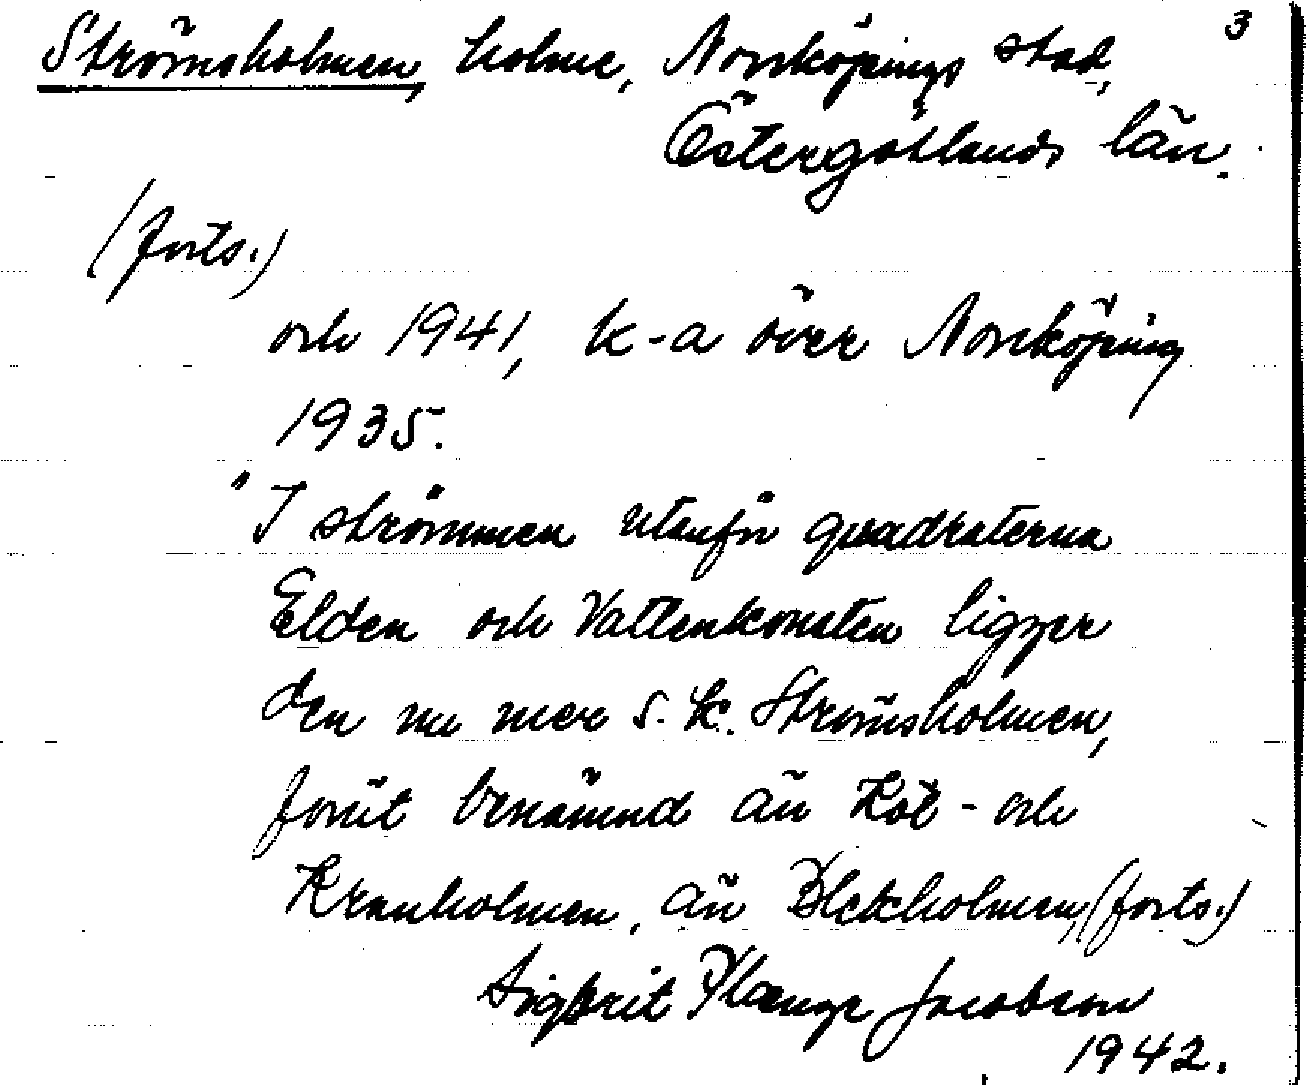 3
Strömsholmen, holme, Norrköpings stad,
Östergötlands län.
(forts.)
och 1941, k-a över Norrköping
1935.
"I strömmen utanför quadraterna
Elden och Vattenkonsten ligger
den nu mer s.k. Strömsholmen,
förut benämnd än Köt- och
Kranholmen, än Blekholmen, (forts.)
Sigbrit Plænge Jacobson
1942.